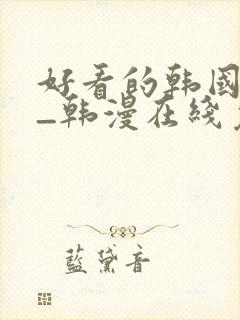 好看的韩國
—韩漫在线
藍黛音